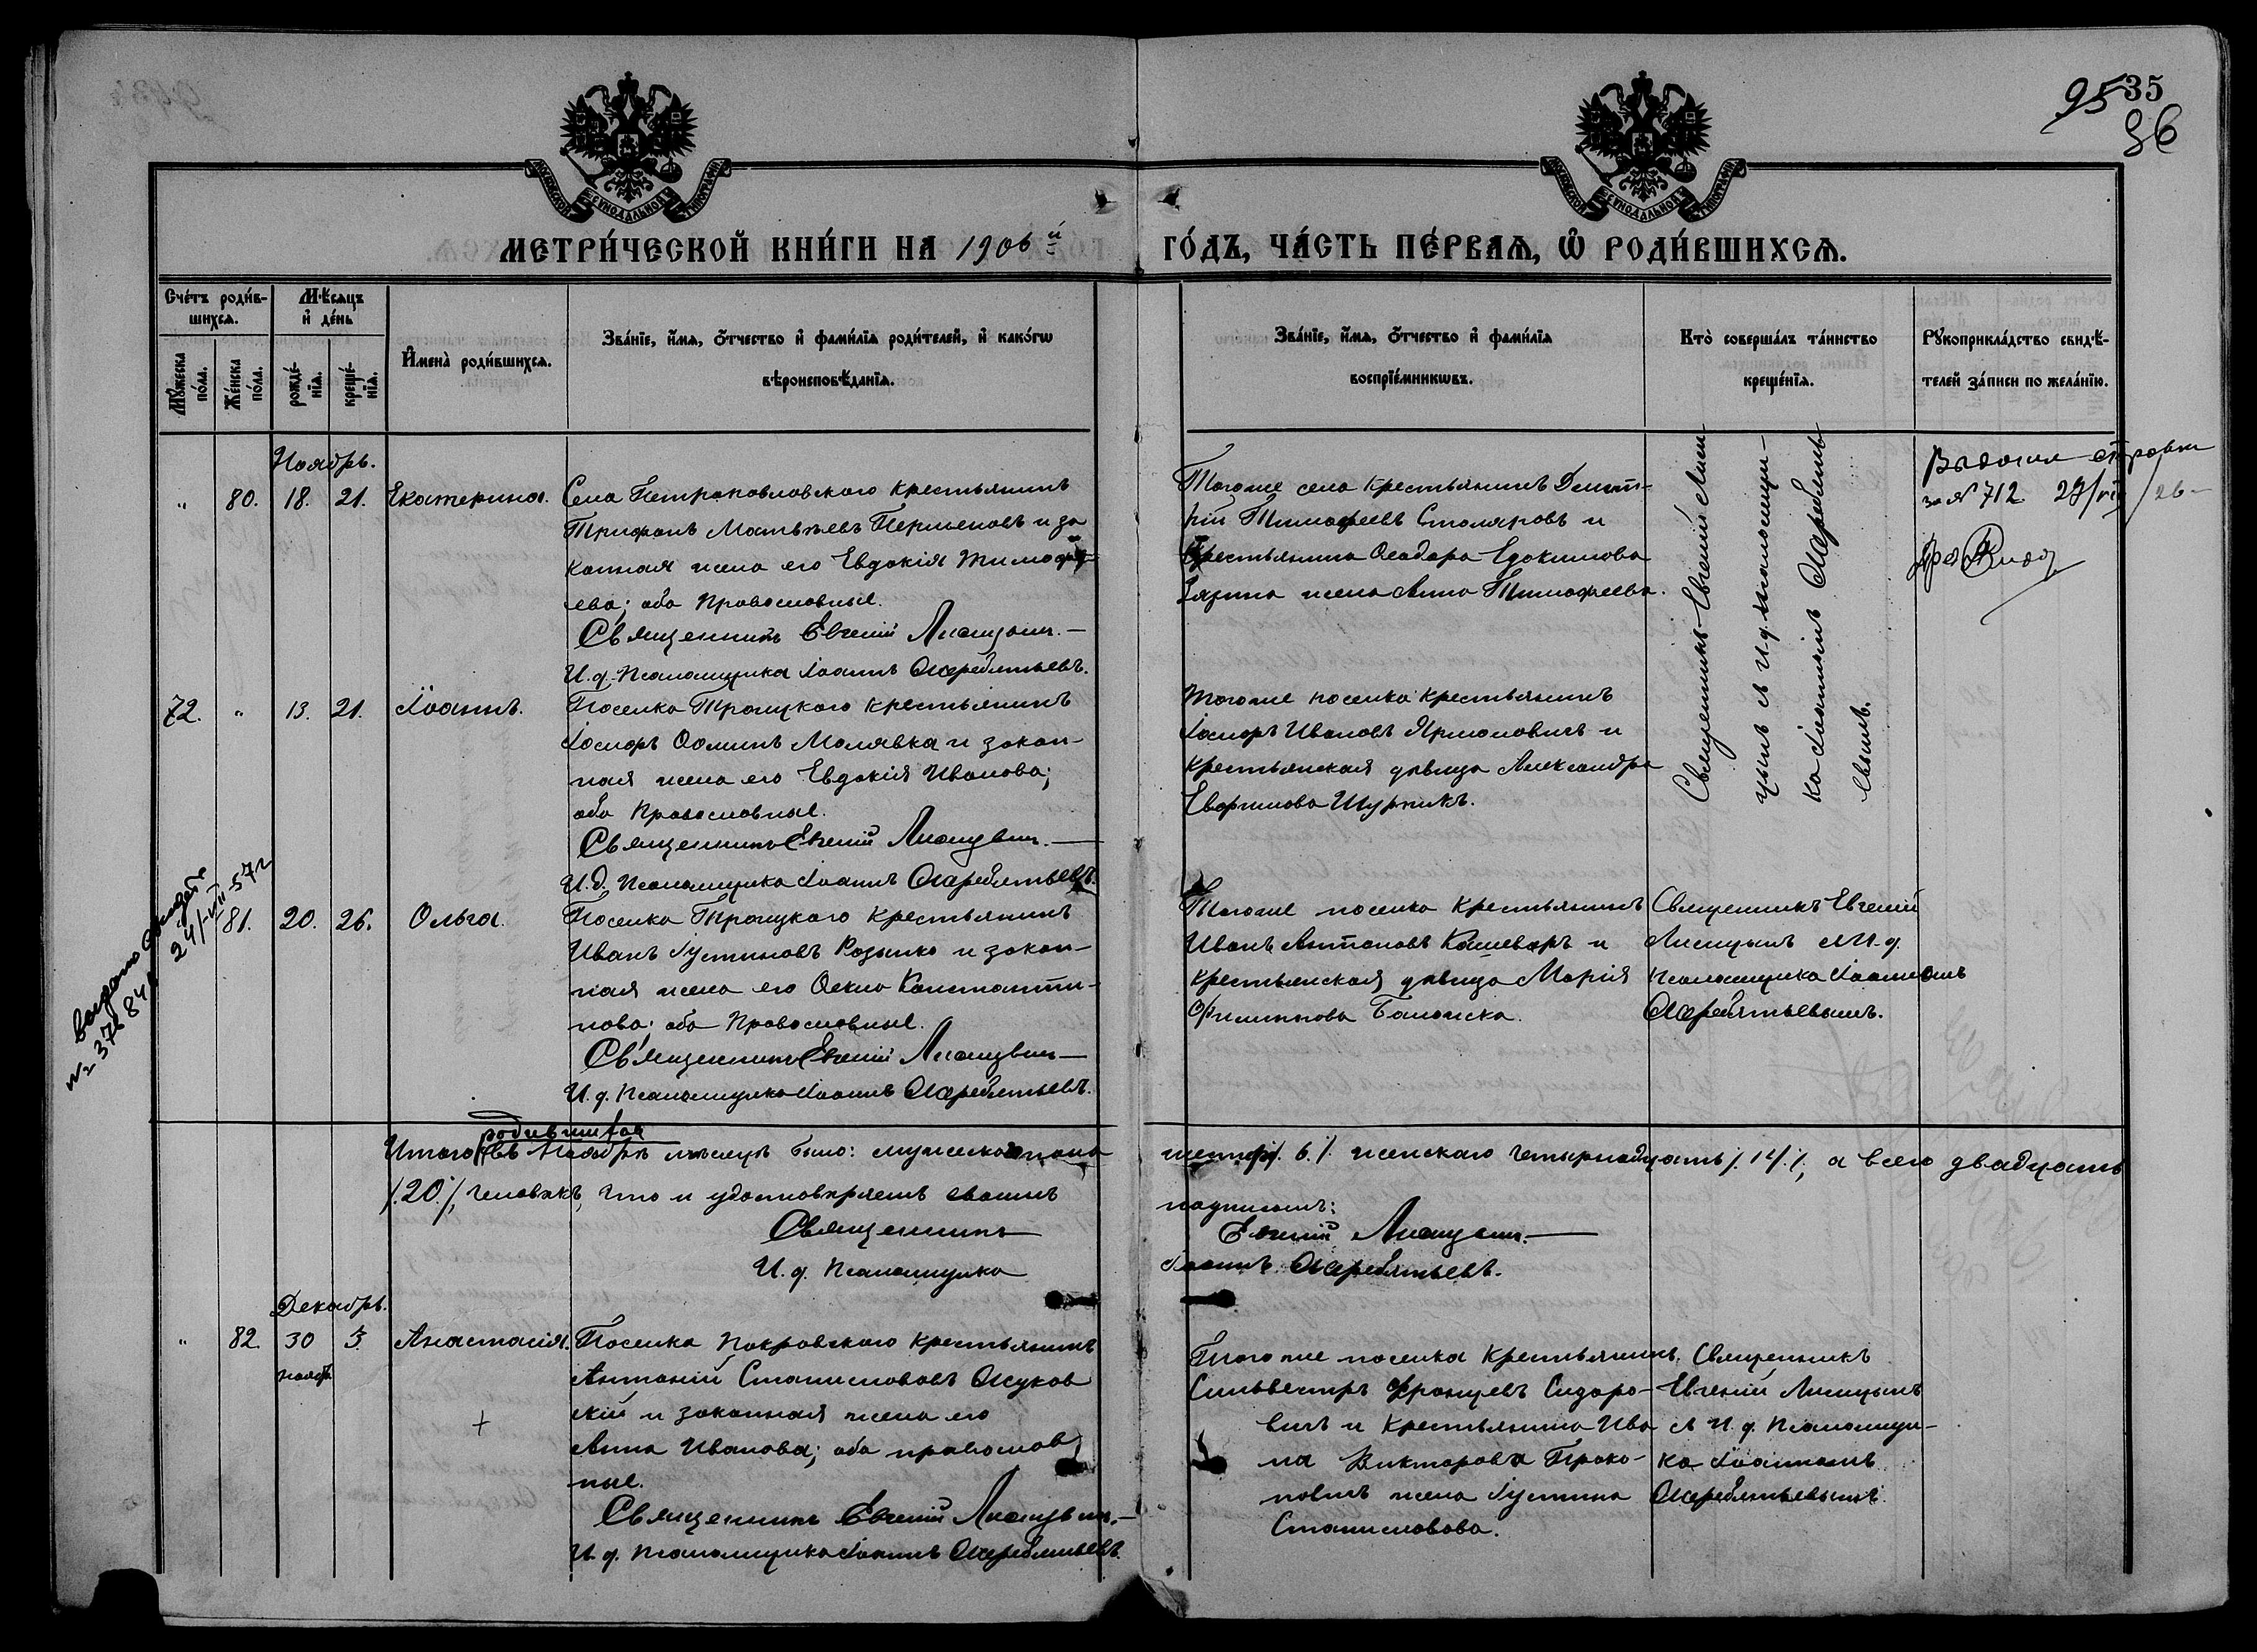 95 35
36
МОСКОВСКОЙ СѴНОДАЛЬНОЙ ТИПОГРАФІИ
МОСКОВСКОЙ СѴНОДАЛЬНОЙ ТИПОГРАФІИ
МЕТРИ́ЧЕСКОЙ КНИ́ГИ НА 1906й ГО́ДЪ, ЧА́СТЬ ПЕ́РВАѦ, Ѡ҆ РОДИ́ВШИХСѦ.
Сче́тъ роди́в-
шихсѧ.
Мꙋ́жеска по́ла.
Же́нска по́ла.
Мѣ́сѧцъ
и҆ де́нь
рожде́-
нїѧ.
креще́-
нїѧ.
И҆мена̀ роди́вшихсѧ.
Зва́нїе, и҆́мѧ, ѻ҆́тчество и҆ фами́лїѧ роди́телей, и҆ како́гѡ
вѣроисповѣ́данїѧ.
Зва́нїе, и҆́мѧ, ѻ҆́тчество и҆ фами́лїѧ
воспрїе́мникѡвъ.
Кто̀ соверша́лъ та́инство
креще́нїѧ.
Рꙋкоприкла́дство свидѣ́-
телей за́писи по жела́нїю.
Ноябрь.
" 80. 18. 21. Екатерина.
Села Петропавловскаго крестьянинъ
Трифонъ Матвѣевъ и за
конная жена его Евдокія Тимофе-
ева; оба Православные.
Священникъ Евгеній Лисицынъ.
И. д. Псаломщика Іоаннъ Ожеребятьевъ.
Тогоже села крестьянинъ Дмит-
рій Тимофеевъ Столяровъ и
крестьянина Ѳеодора Евдокимова
жена Анна Тимофеева.
Священникъ Евгеній Лиси-
цынъ съ И. д. псаломщи-
ка Іоанномъ Ожеребять-
евымъ.
Выдана справка
за № 712 27/VII/26
72. " 13. 21. Іоаннъ.
Поселка Троицкаго крестьянинъ
Іосифъ Ѳоминъ Малявка и закон-
ная жена его Евдокія Иванова;
оба Православные.
Священникъ Евгеній Лисицынъ.
И. д. Псаломщика Іоаннъ Ожеребятьевъ.
Тогоже поселка крестьянинъ
Іосифъ Ивановъ Ярмоловичъ и
крестьянская дѣвица Александра
Евфимова Шурпикъ.
24/VIII-57г
81. 20. 26. Ольга.
Поселка Троицкаго крестьянинъ
Иванъ Іустиновъ Розынко и закон-
ная жена его Ѳекла Константи-
нова; оба Православные.
Священникъ Евгеній Лисицынъ
И. д. Псаломщика Іоаннъ Ожеребятьевъ.
Тогоже поселка крестьянинъ
Иванъ Антоновъ Кашеваръ и
крестьянская дѣвица Марія
Филиппова
Священникъ Евгеній
Лисицынъ съ И. д.
псаломщика Іоанномъ
Ожеребятьевымъ.
родившихся
Итого въ Ноябрѣ мѣсяцѣ было: мужескаго пола шесть /. 6 ./. женскаго четырнадцать /. 14 ./., а всего двадцать
/. 20 ./. человѣкъ, что и удостовѣряемъ своимъ подписомъ:
Священникъ Евгеній Лисицынъ.
И. д. Псаломщика Іоаннъ Ожеребятьевъ.
Декабрь.
" 82. 30 3. Анастасія.
нояб.
+
Поселка Покровскаго крестьянинъ
Антоній Станиславовъ Жуков
скій и законная жена его
Анна Иванова; оба православ
ные.
Священникъ Евгеній Лисицынъ.
И. д. Псаломщика Іоаннъ Ожеребятьевъ.
Того же поселка крестьянинъ
Сильвестръ Францевъ Сидоро-
вичъ и крестьянина Ива
на Викторова Проко-
повичъ жена Іустина
Станиславова.
Священникъ
Евгеній Лисицынъ
съ И. д. Псаломщи-
ка Іоанномъ
Ожеребятьевымъ.